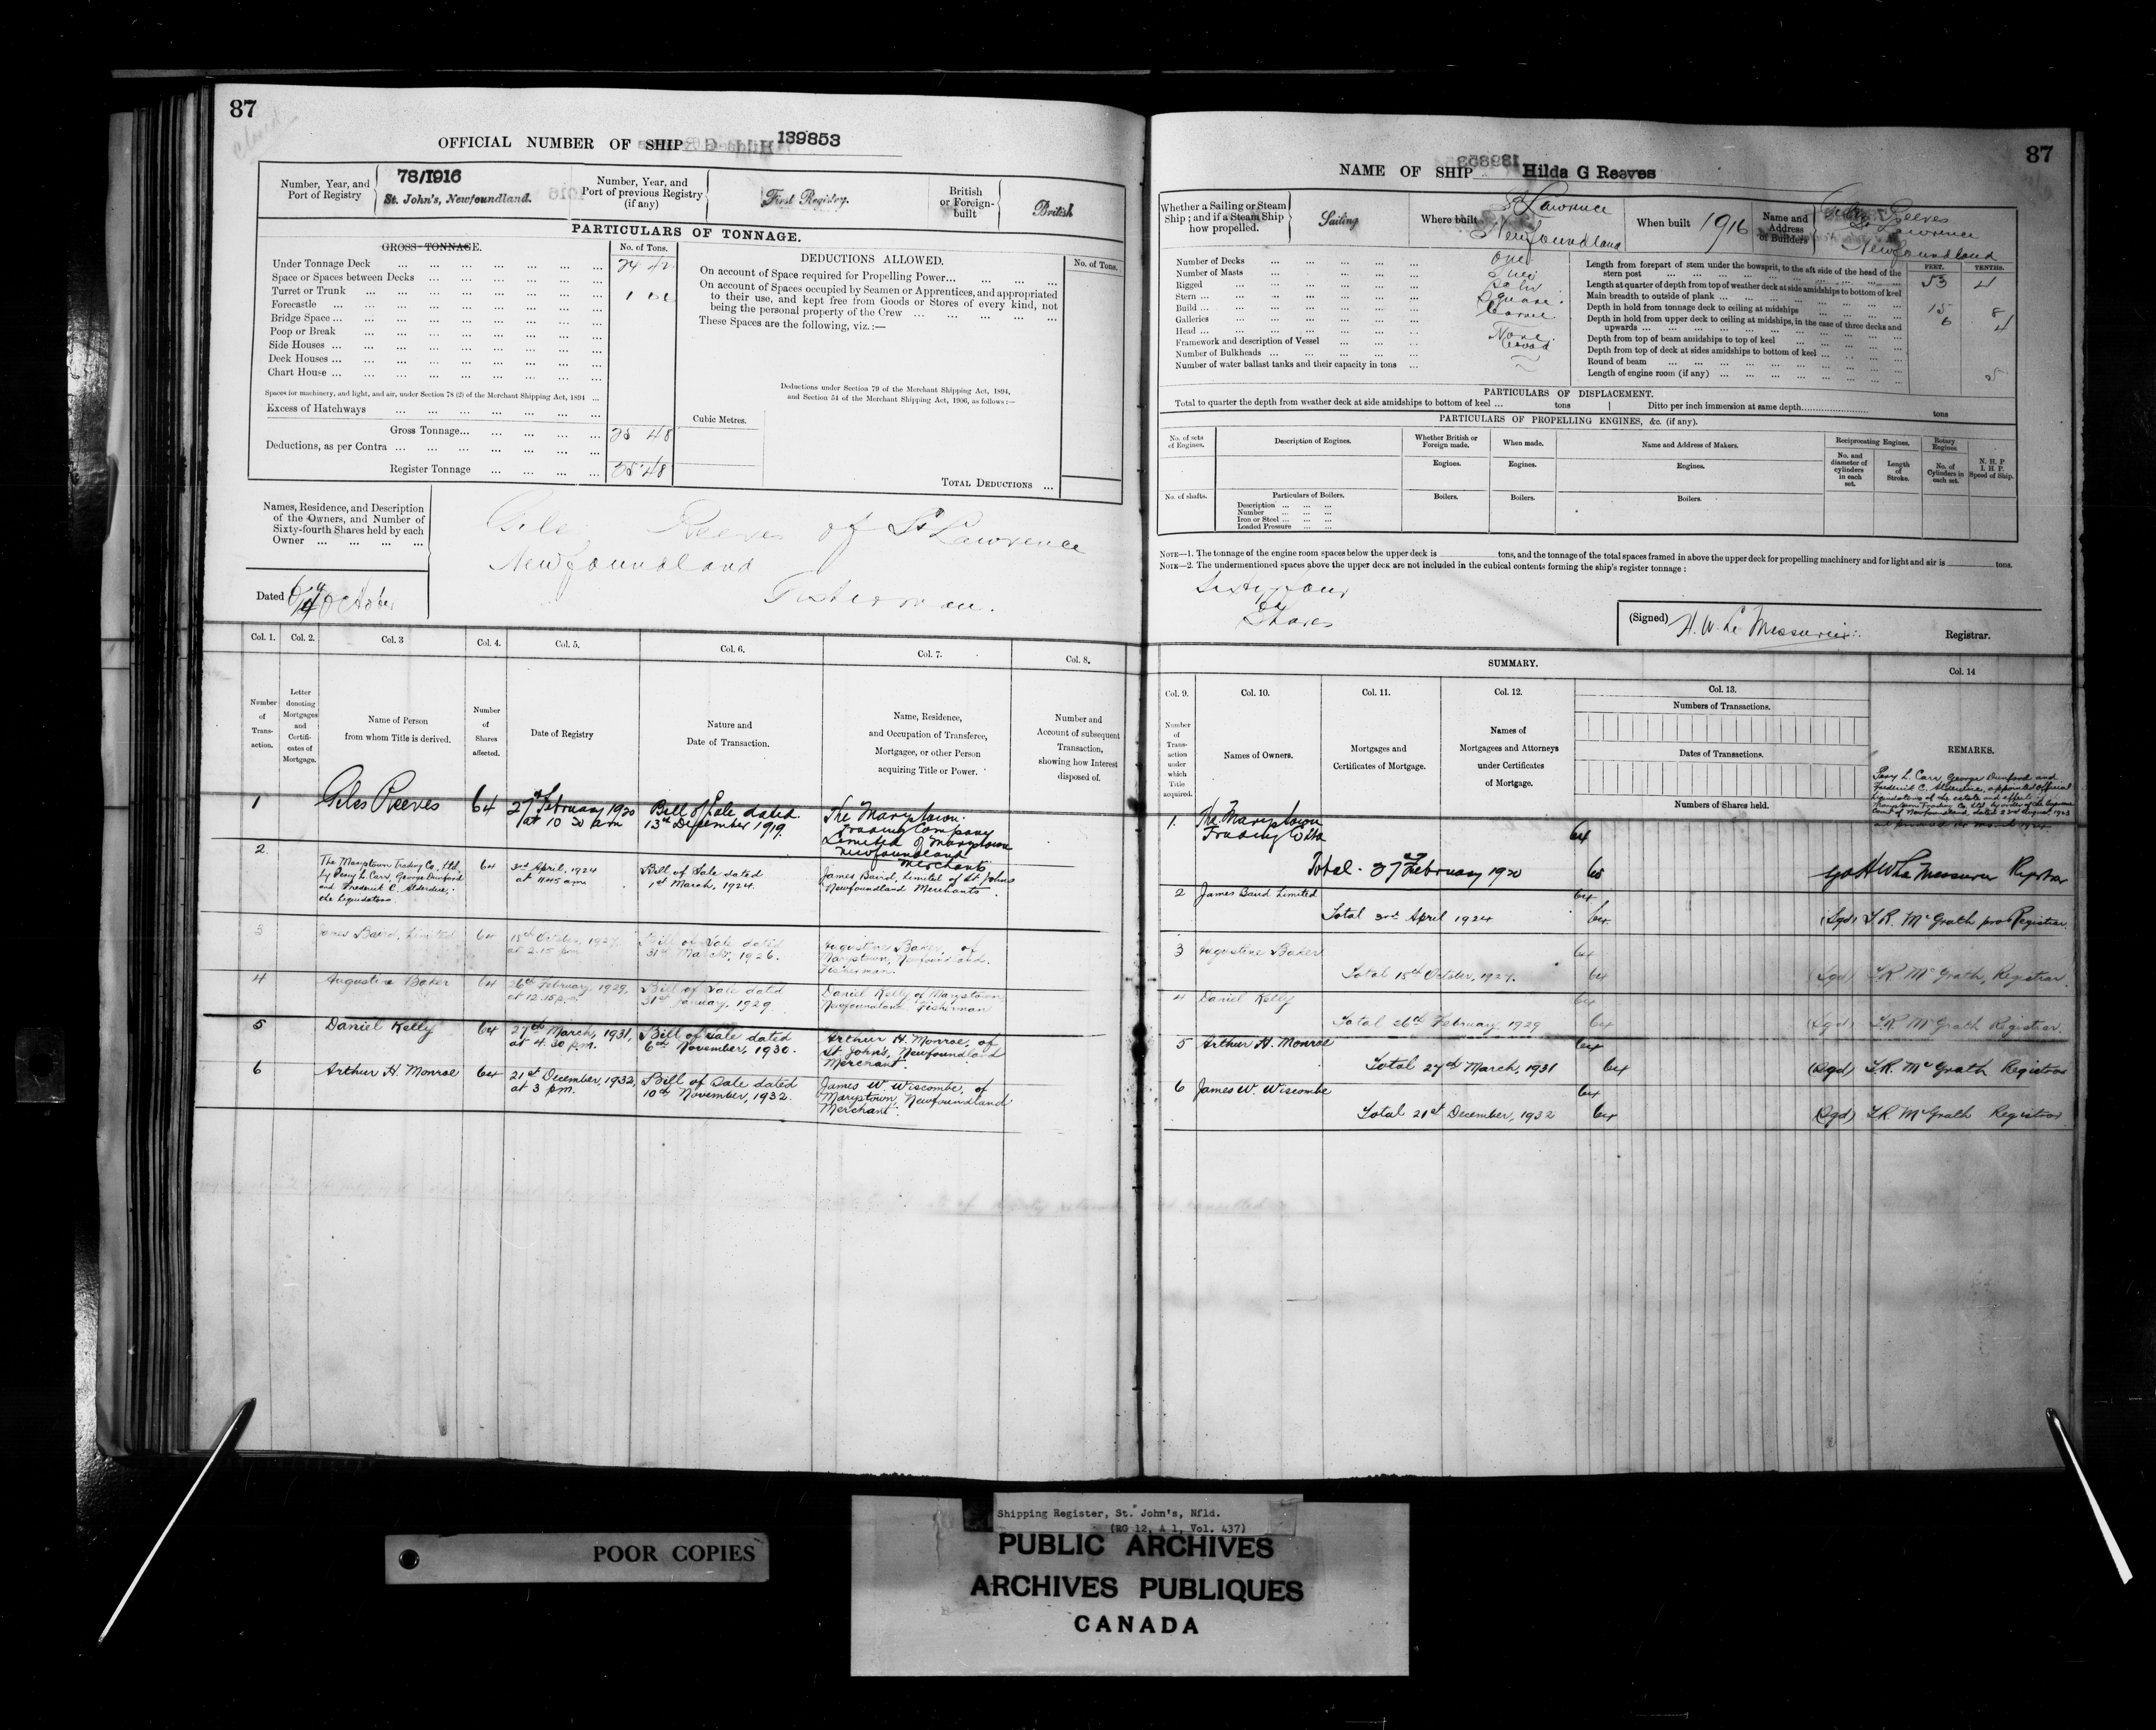 87
Closed
OFFICIAL NUMBER OF SHIP 139853
Number, Year, and Port of Registry
78/1916
St. John's, Newfoundland.
Number, Year, and Port of previous Registry (if any)
First Registry.
British or Foreign-built
British
PARTICULARS OF TONNAGE.
GROSS TONNAGE.
No. of Tons.
Under Tonnage Deck
Space or Spaces between Decks
Turret or Trunk
Forecastle
Bridge Space
Poop or Break
Side Houses
Deck Houses
Chart House
Spaces for machinery, and light, and air, under Section 78 (2) of the Merchant Shipping Act, 1894
Excess of Hatchways
Gross Tonnage 25 48
Deductions, as per Contra
Register Tonnage 25 48
DEDUCTIONS ALLOWED.
No. of Tons.
On account of Space required for Propelling Power
On account of Spaces occupied by Seamen or Apprentices, and appropriated
to their use, and kept free from Goods or Stores of every kind, not
being the personal property of the Crew
These Spaces are the following, viz.:—
Deductions under Section 79 of the Merchant Shipping Act, 1894,
and Section 54 of the Merchant Shipping Act, 1906, as follows:—
Cubic Metres.
TOTAL DEDUCTIONS
Names, Residence, and Description
of the Owners, and Number of
Sixty-fourth Shares held by each
Owner
Giles Reeves of St Lawrence
Newfoundland
Fisherman.
Dated October
Col. 1. Col. 2. Col. 3 Col. 4. Col. 5. Col. 6. Col. 7. Col. 8.
Number of Transaction.
Letter denoting Mortgages and Certificates of Mortgage.
Name of Person from whom Title is derived.
Number of Shares affected.
Date of Registry
Nature and Date of Transaction.
Name, Residence, and Occupation of Transferee, Mortgagee, or other Person acquiring Title or Power.
Number and Account of subsequent Transaction, showing how Interest disposed of.
1 Giles Reeves 64 27th February 1920 at 10 30 am Bill of Sale dated 13th December 1919. The Marystown Trading Company Limited of Marystown Newfoundland Merchants
2 The Marystown Trading Co., Ltd, by Percy L. Carr, George Dunford and Frederick C. Alderdice, the Liquidators. 64 3rd April, 1924 at 11.45 am Bill of Sale dated 1st March, 1924. James Baird, Limited of St. John's Newfoundland Merchants.
3 James Baird, Limited 64 15th October, 1927. at 2.15 pm Bill of Sale dated 31st March, 1926. Augustine Baker, of Marystown, Newfoundland. Fisherman.
4 Augustine Baker 64 26th February, 1929, at 12.15 p.m. Bill of Sale dated 31st January, 1929 Daniel Kelly of Marystown Newfoundland Fisherman
5 Daniel Kelly 64 27th March, 1931, at 4.30 p.m. Bill of Sale dated 6th November, 1930. Arthur H. Monroe, of St. John's, Newfoundland Merchant.
6 Arthur H. Monroe 64 21st December, 1932, at 3 p.m. Bill of Sale dated 10th November, 1932. James W. Wiscombe, of Marystown, Newfoundland Merchant.
87
NAME OF SHIP Hilda G Reeves
Whether a Sailing or Steam Ship; and if a Steam Ship how propelled.
Sailing
Where built
St Lawrence
Newfoundland
When built 1916
Name and Address of Builders
Giles Reeves
St Lawrence
Newfoundland
Number of Decks One
Number of Masts Two
Rigged
Stern Square
Build Carvel
Galleries
Head None
Framework and description of Vessel Wood
Number of Bulkheads
Number of water ballast tanks and their capacity in tons
FEET. TENTHS.
Length from forepart of stem under the bowsprit, to the aft side of the head of the stern post 53 4
Length at quarter of depth from top of weather deck at side amidships to bottom of keel
Main breadth to outside of plank 15 8
Depth in hold from tonnage deck to ceiling at midships 6 4
Depth in hold from upper deck to ceiling at midships, in the case of three decks and upwards
Depth from top of beam amidships to top of keel
Depth from top of deck at sides amidships to bottom of keel
Round of beam
Length of engine room (if any)
PARTICULARS OF DISPLACEMENT.
Total to quarter the depth from weather deck at side amidships to bottom of keel ... tons Ditto per inch immersion at same depth tons
PARTICULARS OF PROPELLING ENGINES, &c. (if any).
No. of sets of Engines.
Description of Engines.
Whether British or Foreign made.
When made.
Name and Address of Makers.
Reciprocating Engines.
Rotary Engines
No. and diameter of cylinders in each set.
Length of Stroke.
No. of Cylinders in each set.
N. H. P
I. H. P.
Speed of Ship.
Engines. Engines. Engines.
No. of shafts.
Particulars of Boilers.
Boilers. Boilers. Boilers.
Description
Number
Iron or Steel
Loaded Pressure
NOTE—1. The tonnage of the engine room spaces below the upper deck is tons, and the tonnage of the total spaces framed in above the upper deck for propelling machinery and for light and air is tons.
NOTE—2. The undermentioned spaces above the upper deck are not included in the cubical contents forming the ship's register tonnage:
Sixty four
64
Shares
(Signed) H. W. Le Messurier Registrar.
SUMMARY.
Col. 9. Col. 10. Col. 11. Col. 12. Col. 13. Col. 14
Number of Transaction under which Title acquired.
Names of Owners.
Mortgages and Certificates of Mortgage.
Names of Mortgagees and Attorneys under Certificates of Mortgage.
Numbers of Transactions.
Dates of Transactions.
Numbers of Shares held.
REMARKS.
Percy L. Carr, George Dunford and
Frederick C. Alderdice, appointed Official
Liquidators of the estate and effects of
Marystown Trading Co. Ltd. by order of the Supreme
Court of Newfoundland, dated 23rd August, 1923
1. The Marystown Trading Co Ltd 64
Total. 27th February 1920 64 sgd H W Le Messurier Registrar
2 James Baird Limited 64
Total 3rd April 1924 64 (Sgd) T.R. McGrath pro Registrar.
3 Augustine Baker 64
Total 15th October, 1927. 64 (Sgd) T.R. McGrath, Registrar.
4 Daniel Kelly 64
Total 26th February, 1929 64 (Sgd) T.R. McGrath Registrar.
5 Arthur H. Monroe 64
Total 27th March, 1931 64 (Sgd) T.R. McGrath Registrar
6 James W. Wiscombe 64
Total 21st December, 1932 64 (Sgd) T.R. McGrath Registrar
POOR COPIES
Shipping Register, St. John's, Nfld.
(RG 12, A 1, Vol. 437)
PUBLIC ARCHIVES
ARCHIVES PUBLIQUES
CANADA